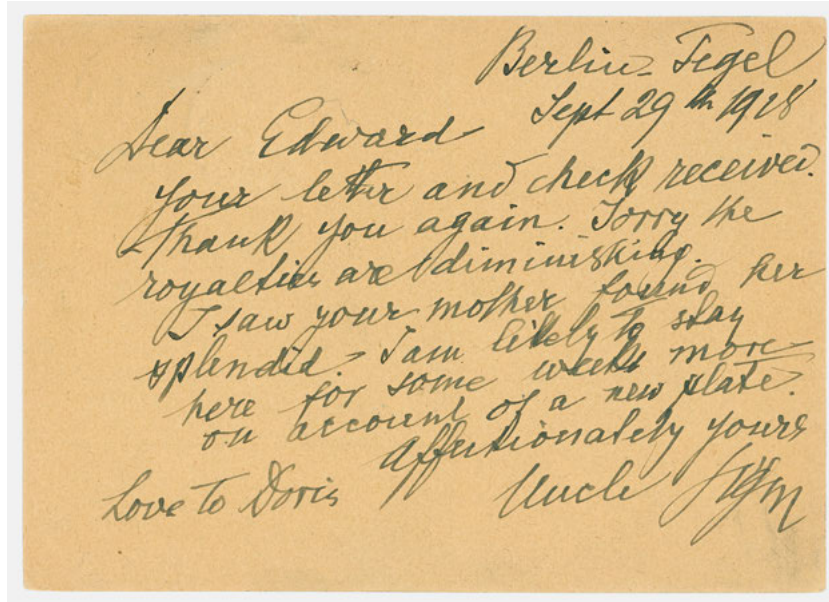 Berlin-Tegel
Sept 29th 1928
Dear Edward
your letter and check received.
Thank you again. Sorry the
royalties are diminishing.
I saw your mother found her
splendid. I am likely to stay
here for some weeks more
on account of a new plate.
Affectionately yours
Love to Doris Uncle Sigm